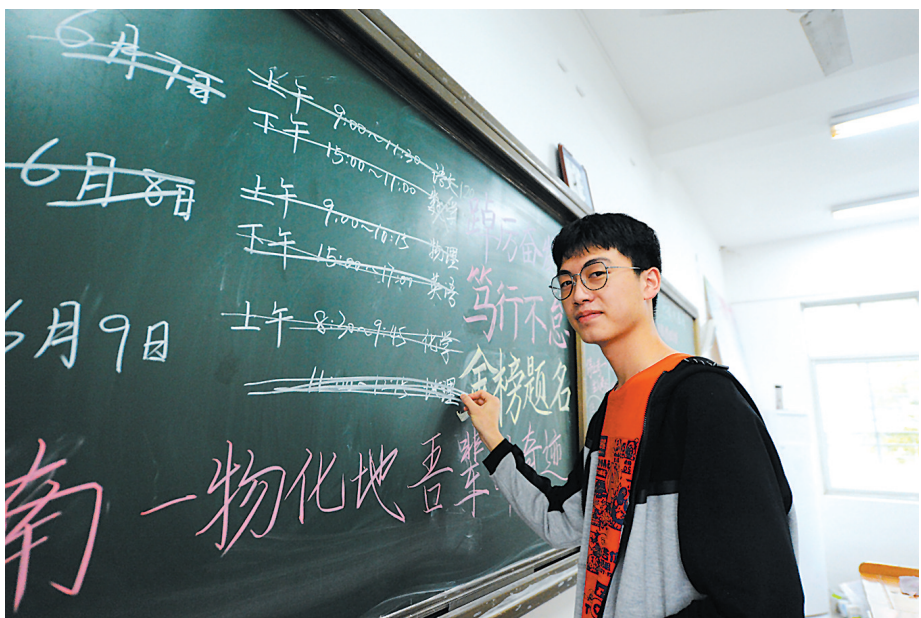 6月7日
上午 9:00~11:30 语文
下午 15:00~17:00 数学
6月8日
上午 9:00~10:15 物理
下午 15:00~17:00 英语
6月9日
上午 8:30~9:45 化学
地理
笃行不息
金榜题名
南一物化地 吾辈 奇迹